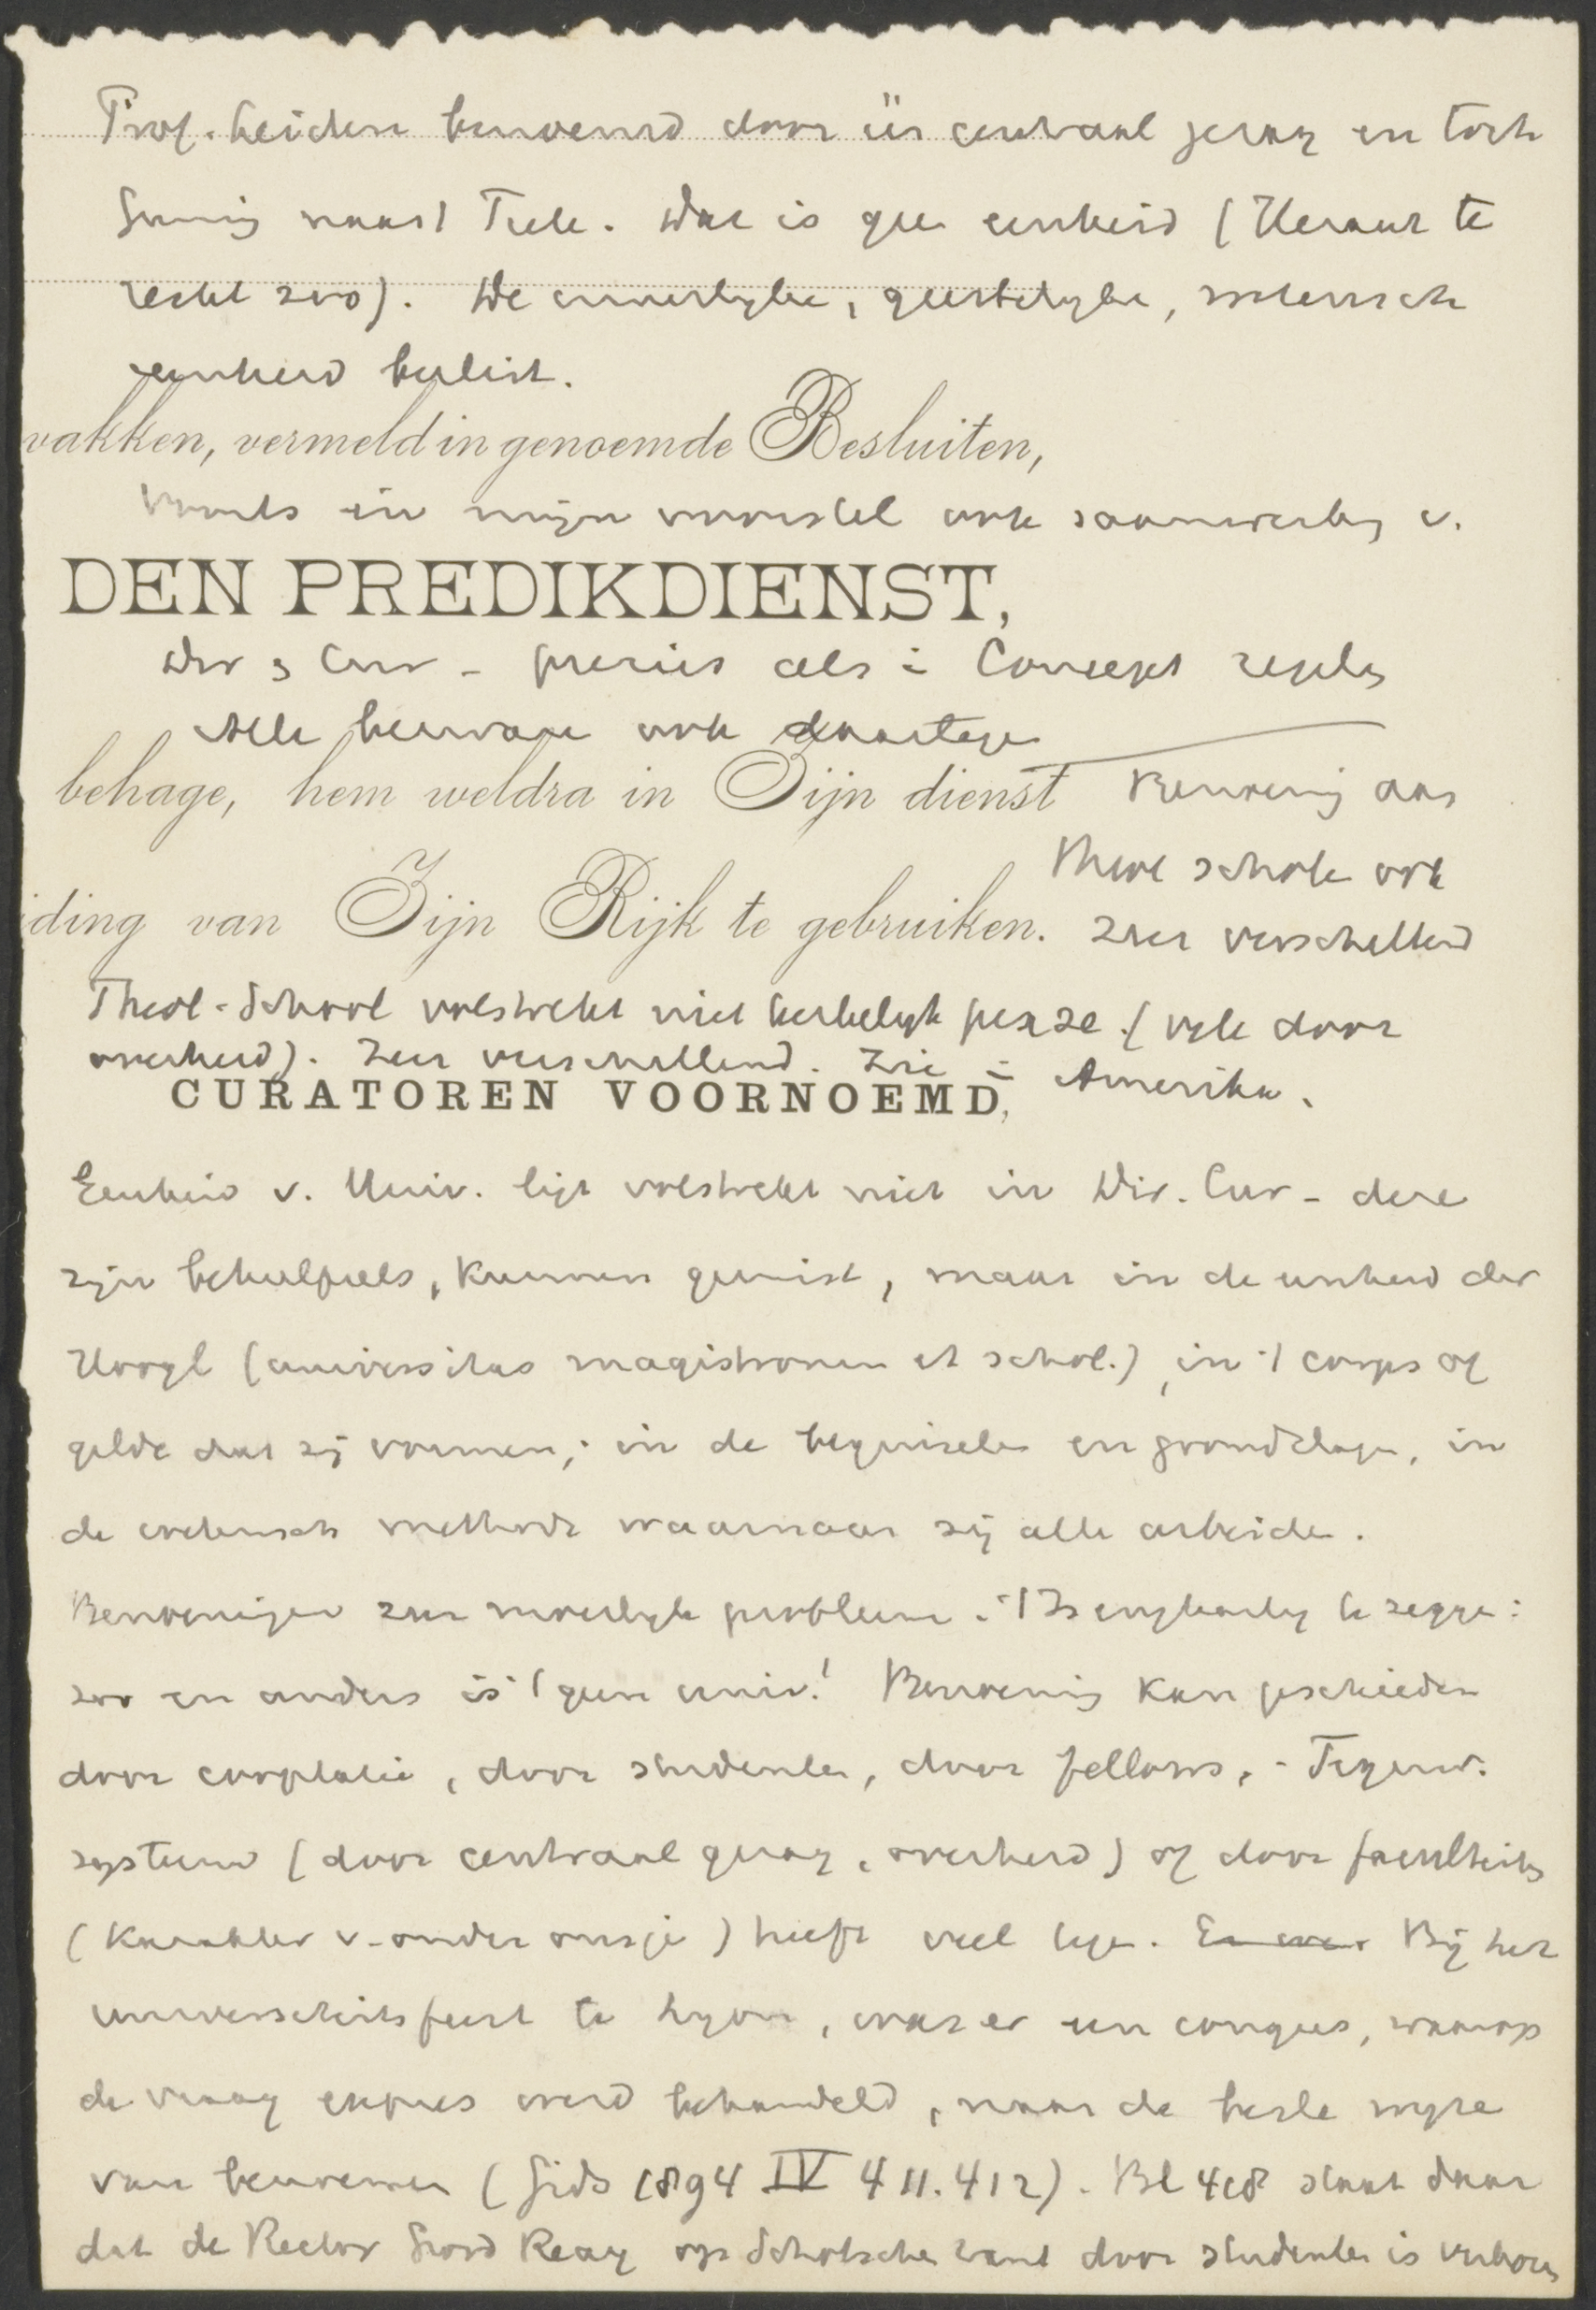 Prof. Leiden benoemd door één centraal gezag en toch
Gunning naast Tiele. Dat is geen eenheid (Heraut te
recht zoo). De innerlyke, geestelyke, wetensch
eenheid beslist.
vakken, vermeld in genoemde Besluiten,
Voorts in mijn voorstel ook saamwerking v.
DEN PREDIKDIENST,
Dir & Cur - precies als i Concept regeling
Alle bezwaren ook daartegen
behage, hem weldra in Zijn dienst Benoeming aan
Theol school ook
iding van Zijn Rijk te gebruiken. zeer verschillend
Theol. School volstrekt niet kerkelyk per se. (vele door
overheid). Zeer verschillend. Zie i Amerika.
CURATOREN VOORNOEMD,
Eenheid v. Univ. ligt volstrekt niet in Dir. Cur - deze
zijn behulpsels, kunnen gemist, maar in de eenheid der
Hoogl (universitas magistrorum et schol.), in 't corps of
gilde dat zij vormen; in de beginselen en grondslagen, in
de wetensch methode waarnaar zij alle arbeiden.
Benoemingen zeer moeilyk probleem. 't Is te zeggen:
zoo en anders is 't geen univ.! Benoeming kan geschieden
door cooptatie, door studenten, door fellows, - Tegenw.
systeem (door centraal gezag, overheid) of door faculteiten
(karakter v. onder onsje) heeft veel tegen. Bij het
universiteitsfeest te Lyon, was er een congres, waarop
de vraag expres werd behandeld, naar de beste wyze
van benoemen (Gids 1894 IV 411.412). Bl 408 staat daar
dat de Rector Lord Reay op Schotsche trant door studenten is verkozen